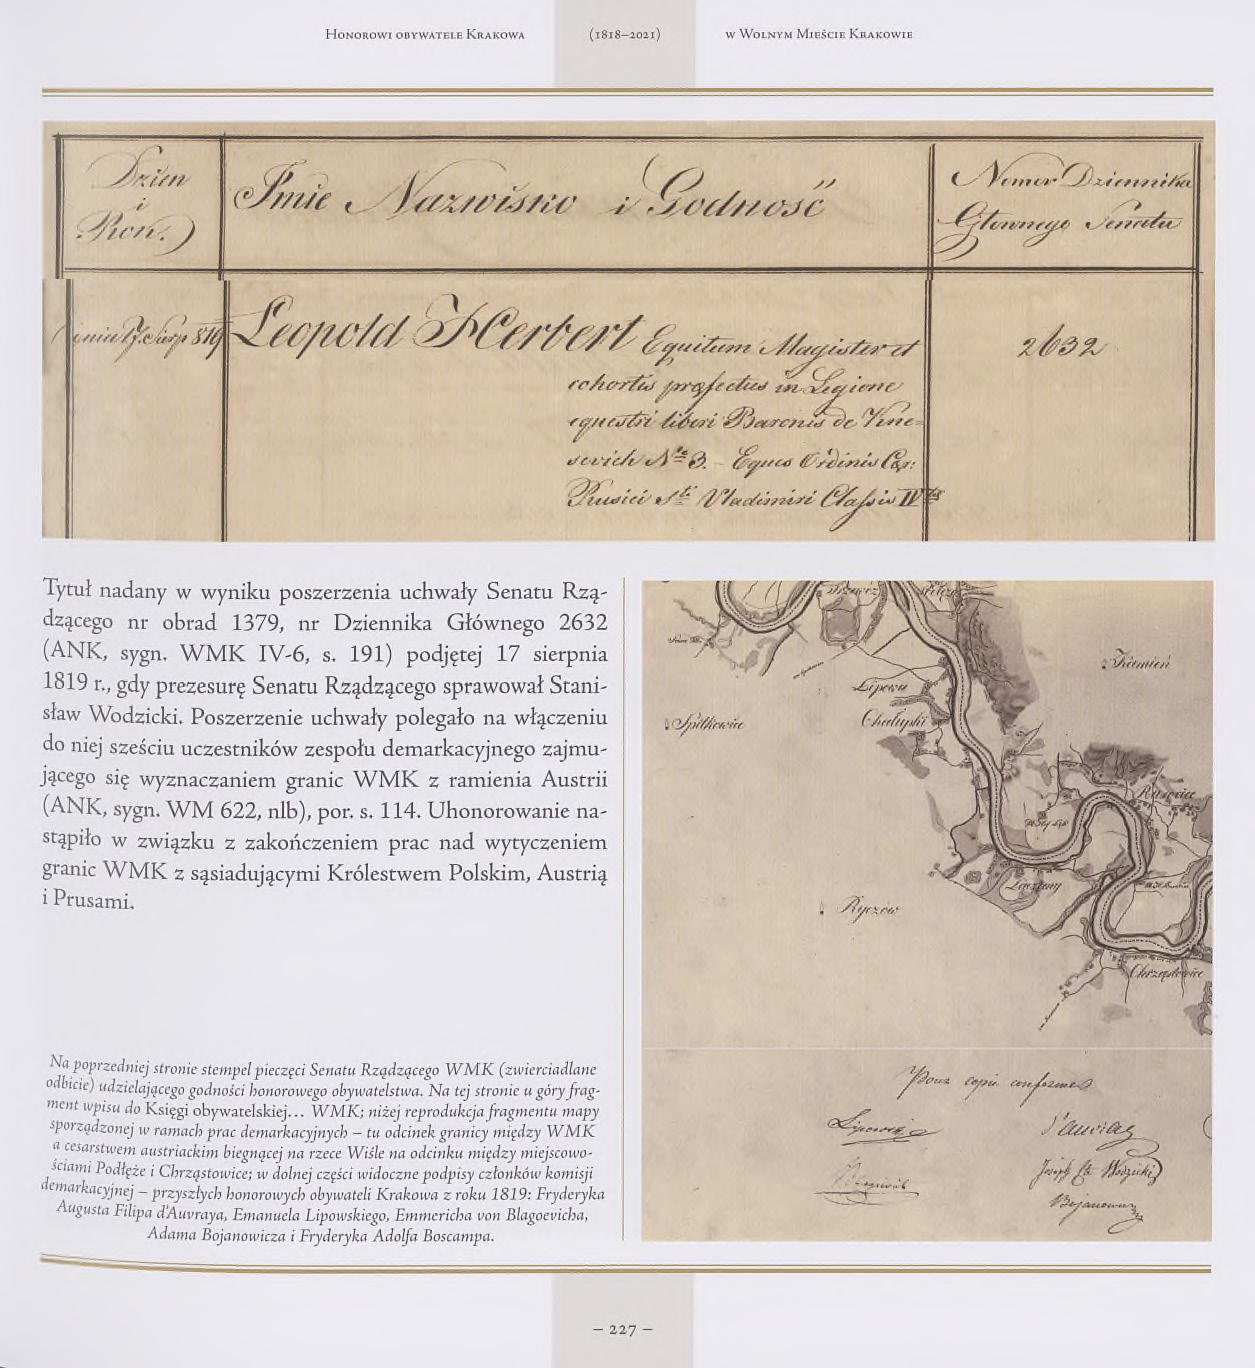 Honorowi obywatele Krakowa (1818–2021) w Wolnym Mieście Krakowie
Dzien
i
Rok.
Imie Nazwisko i Godność
Nomer Dziennika
Głownego Senatu
dnia 17. Sierp 819
Leopold Herbert Equitum Magister et
cohortis præfectus in Legione
equestri liberi Baronis de Kne-
sevich No 3. - Eques Ordinis Cæs:
Rusici Sti Vladimiri Classis IVtæ
2632
Tytuł nadany w wyniku poszerzenia uchwały Senatu Rzą-
dzącego nr obrad 1379, nr Dziennika Głównego 2632
(ANK, sygn. WMK IV-6, s. 191) podjętej 17 sierpnia
1819 r., gdy prezesurę Senatu Rządzącego sprawował Stani-
sław Wodzicki. Poszerzenie uchwały polegało na włączeniu
do niej sześciu uczestników zespołu demarkacyjnego zajmu-
jącego się wyznaczaniem granic WMK z ramienia Austrii
(ANK, sygn. WM 622, nlb), por. s. 114. Uhonorowanie na-
stąpiło w związku z zakończeniem prac nad wytyczeniem
granic WMK z sąsiadującymi Królestwem Polskim, Austrią
i Prusami.
Na poprzedniej stronie stempel pieczęci Senatu Rządzącego WMK (zwierciadlane
odbicie) udzielającego godności honorowego obywatelstwa. Na tej stronie u góry frag-
ment wpisu do Księgi obywatelskiej... WMK; niżej reprodukcja fragmentu mapy
sporządzonej w ramach prac demarkacyjnych – tu odcinek granicy między WMK
a cesarstwem austriackim biegnącej na rzece Wiśle na odcinku między miejscowo-
ściami Podłęże i Chrząstowice; w dolnej części widoczne podpisy członków komisji
demarkacyjnej – przyszłych honorowych obywateli Krakowa z roku 1819: Fryderyka
Augusta Filipa d'Auvraya, Emanuela Lipowskiego, Emmericha von Blagoevicha,
Adama Bojanowicza i Fryderyka Adolfa Boscampa.
Kamień
Lipowa
Chałupki
Spitkowice
Rusocice
Łączany
Ryczów
Chrząstowice
Pour copie conforme
Lipowski
d'Auvray
Joseph Cte Wodzicki
Bojanowicz
– 227 –